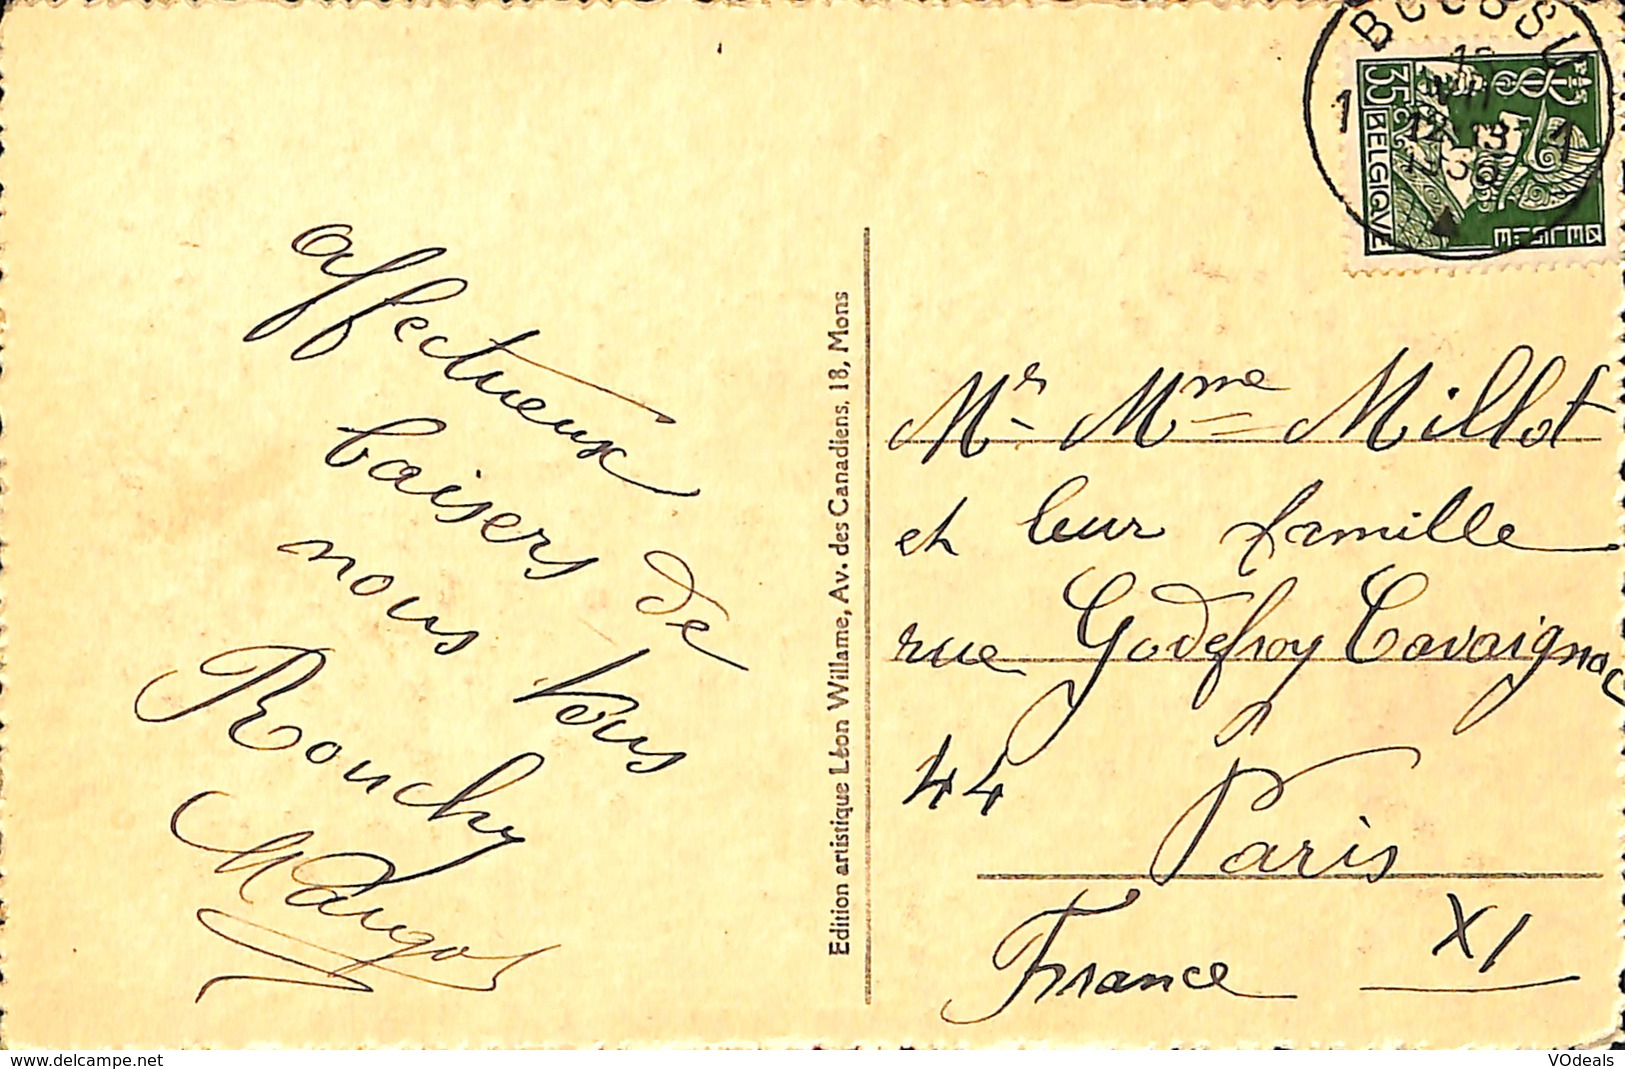 affectueux
baisers de
nous tous
Rouchy
Margot
Edition artistique Léon Willame, Av. des Canadiens, 18, Mons
BOUSSU
1 1
12-13
35
BELGIQVE
Mr Mme Millot
et leur famille
rue Godefroy Cavaignac
44
Paris
XI
France
www.delcampe.net
VOdeals